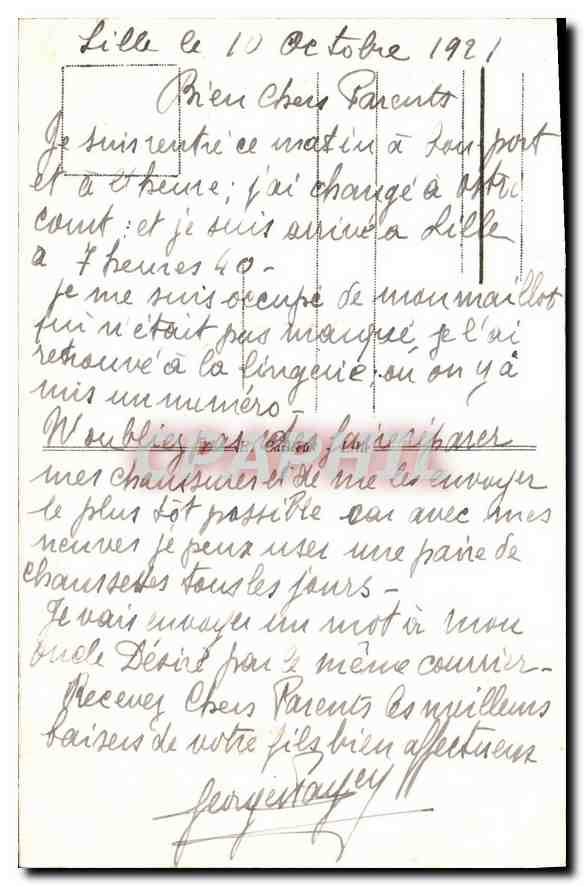 Lille le 10 Octobre 1921
Bien Chers Parents
Je suis rentré ce matin à bon port
et à l'heure; j'ai changé à
court : et je suis arrivé à Lille
à 7 heures 40 -
je me suis occupé de mon maillot
qui n'était pas marqué, je l'ai
retrouvé à la lingerie; où on y à
mis un numéro -
N'oubliez pas de faire réparer
mes chaussures et de me les envoyer
le plus tôt possible car avec mes
neuves je peux user une paire de
chaussettes tous les jours -
Je vais envoyer un mot à mon
oncle Désiré par le même courrier -
Recevez Chers Parents les meilleurs
baisers de votre fils bien affectueux
Georges
CPAPHIL